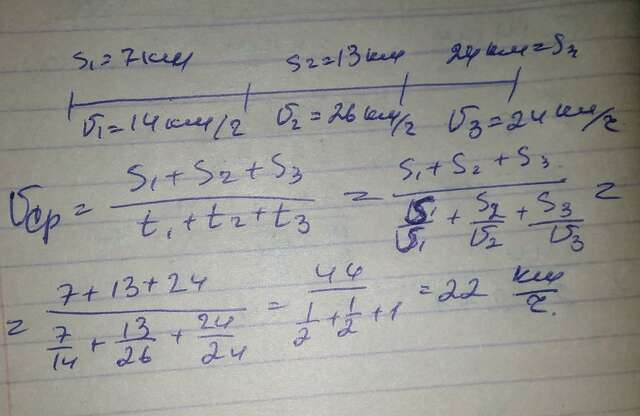 S₁=7км S₂=13км 24км=S₃
υ₁=14км/ч υ₂=26км/ч υ₃=24км/ч
υср = (S₁+S₂+S₃)/(t₁+t₂+t₃) = (S₁+S₂+S₃)/(S₁/υ₁ + S₂/υ₂ + S₃/υ₃) =
= (7+13+24)/(7/14 + 13/26 + 24/24) = 44/(1/2 + 1/2 + 1) = 22 км/ч.